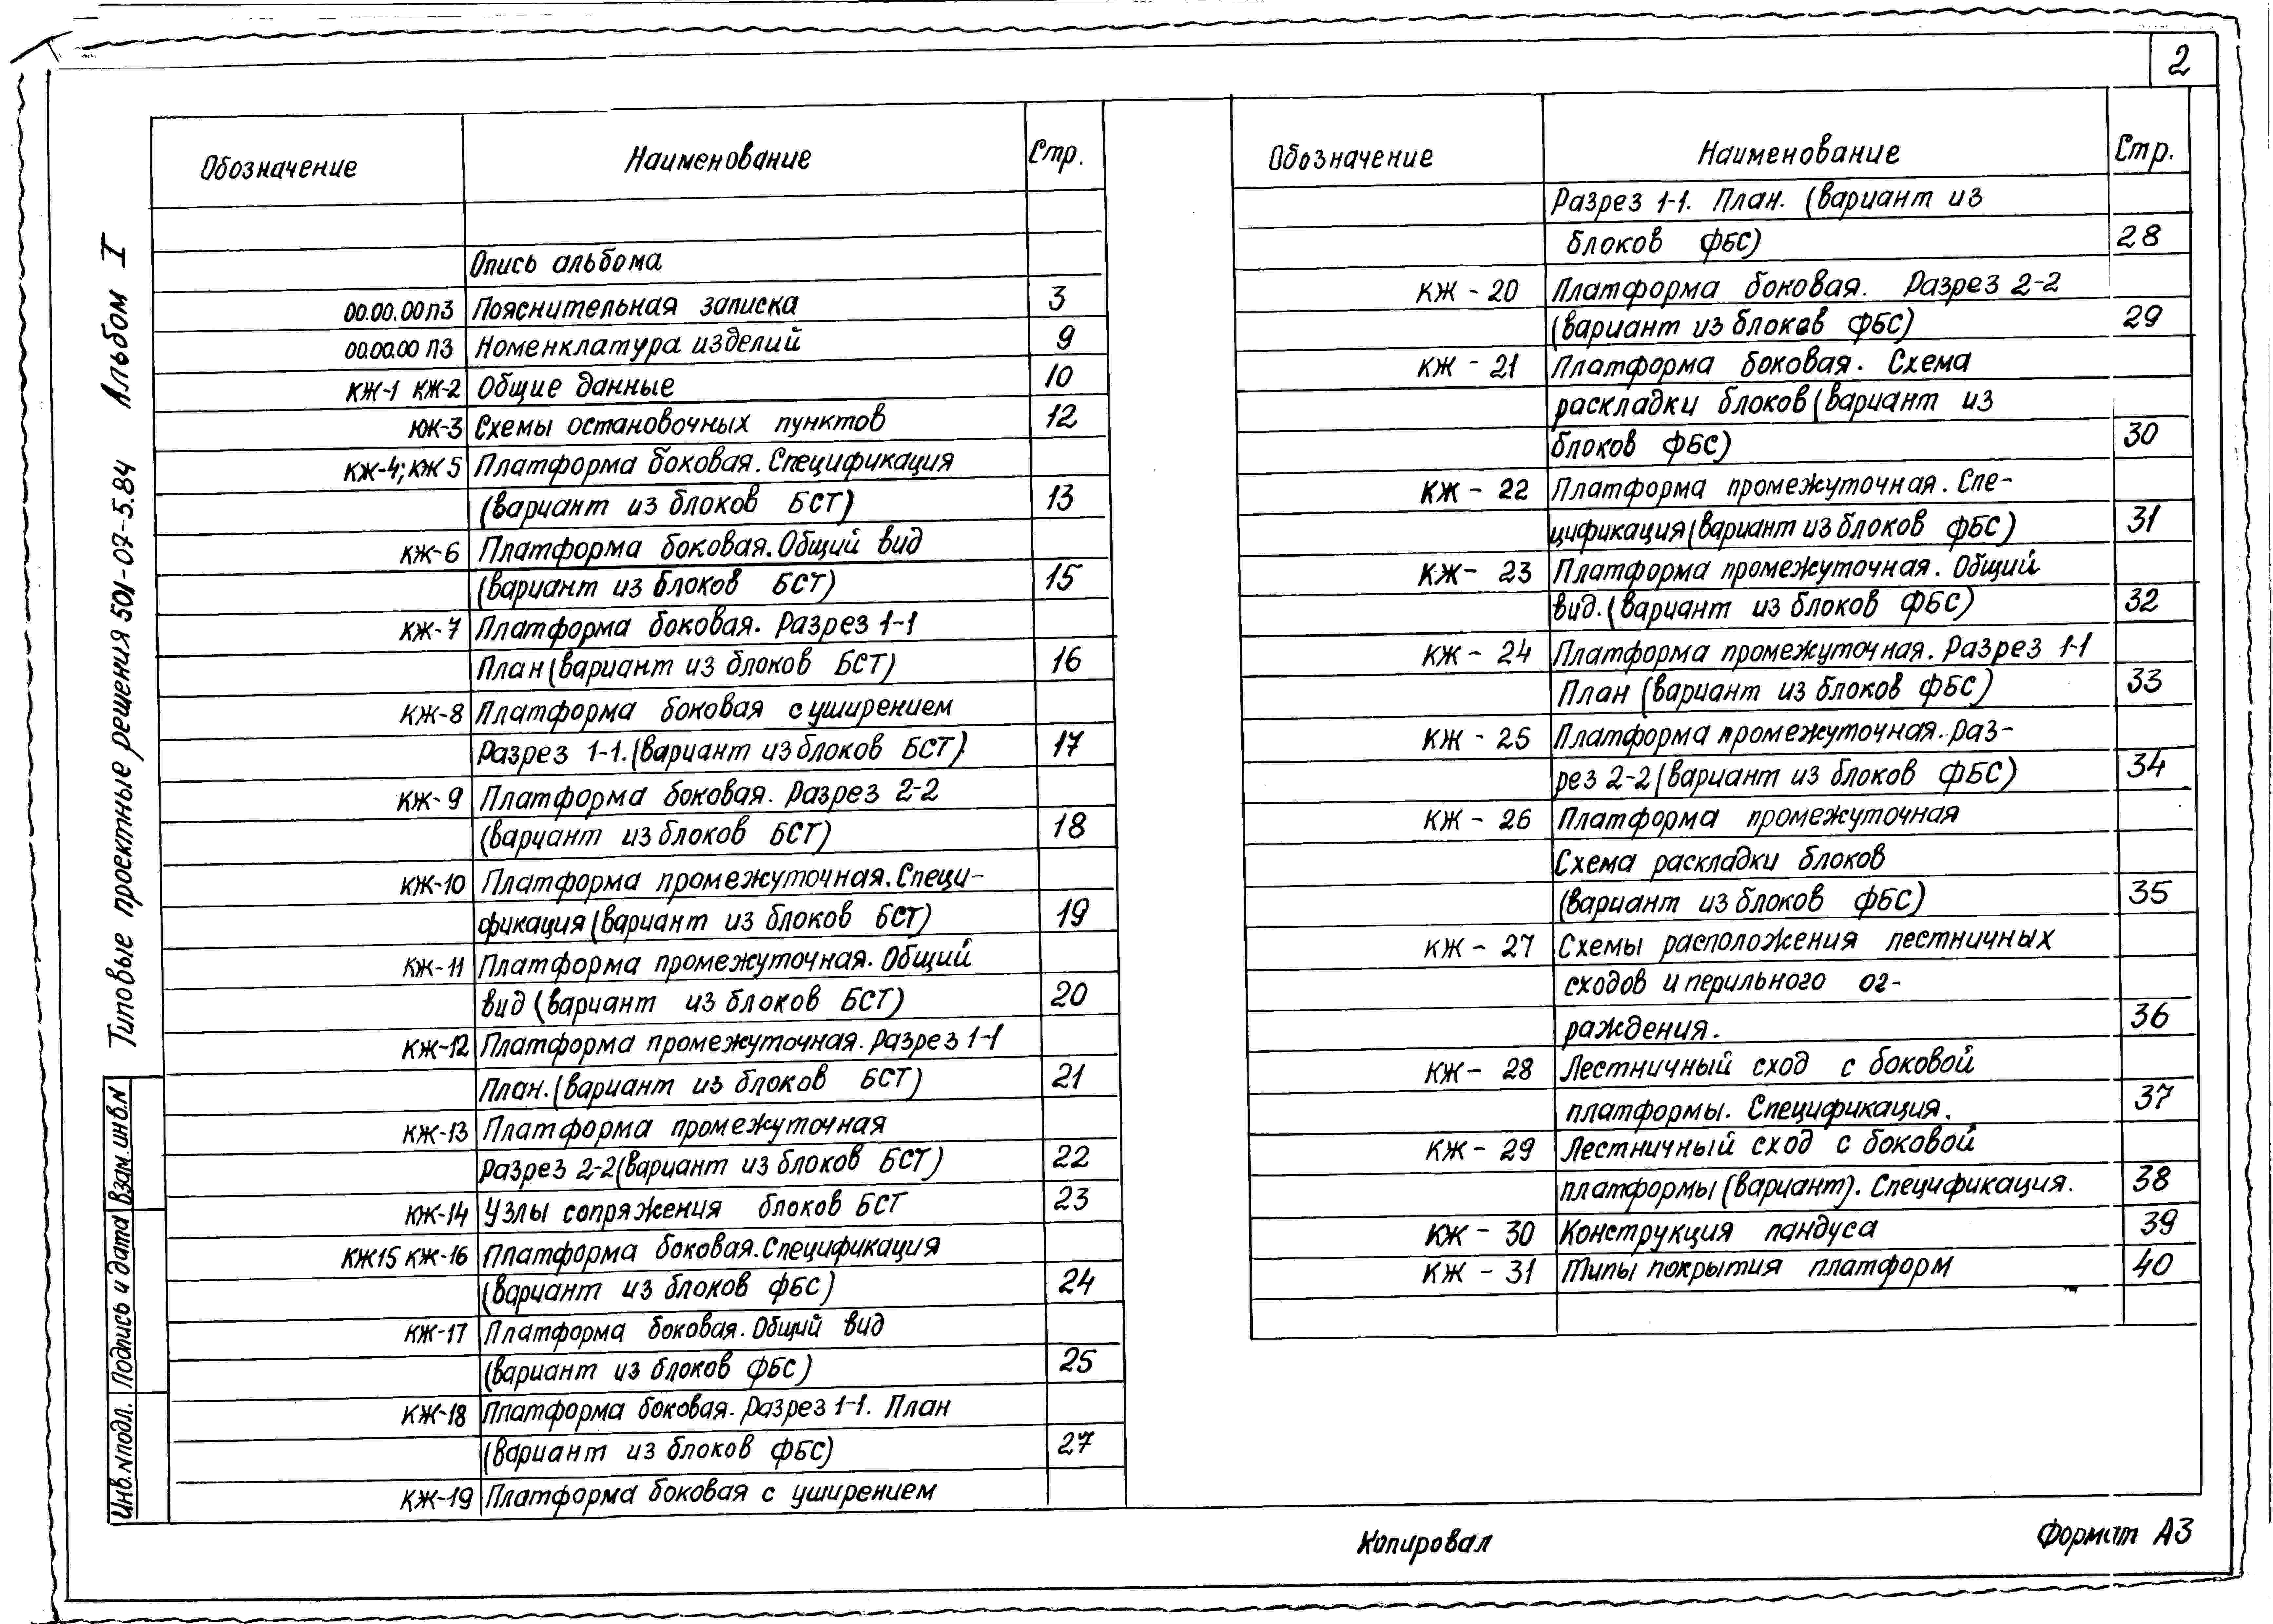 2
Типовые проектные решения 501-07-5.84 Альбом I
Обозначение Наименование Стр.
Опись альбома
00.00.00ПЗ Пояснительная записка 3
00.00.00 ПЗ Номенклатура изделий 9
КЖ-1 КЖ-2 Общие данные 10
КЖ-3 Схемы остановочных пунктов 12
КЖ-4; КЖ 5 Платформа боковая. Спецификация
(вариант из блоков БСТ) 13
КЖ-6 Платформа боковая. Общий вид
(вариант из блоков БСТ) 15
КЖ-7 Платформа боковая. Разрез 1-1
План (вариант из блоков БСТ) 16
КЖ-8 Платформа боковая с уширением
Разрез 1-1. (вариант из блоков БСТ) 17
КЖ-9 Платформа боковая. Разрез 2-2
(вариант из блоков БСТ) 18
КЖ-10 Платформа промежуточная. Специ-
фикация (вариант из блоков БСТ) 19
КЖ-11 Платформа промежуточная. Общий
вид (вариант из блоков БСТ) 20
КЖ-12 Платформа промежуточная. Разрез 1-1
План. (вариант из блоков БСТ) 21
КЖ-13 Платформа промежуточная
Разрез 2-2 (вариант из блоков БСТ) 22
КЖ-14 Узлы сопряжения блоков БСТ 23
КЖ15 КЖ-16 Платформа боковая. Спецификация
(вариант из блоков ФБС) 24
КЖ-17 Платформа боковая. Общий вид
(вариант из блоков ФБС) 25
КЖ-18 Платформа боковая. Разрез 1-1. План
(вариант из блоков ФБС) 27
КЖ-19 Платформа боковая с уширением
Обозначение Наименование Стр.
Разрез 1-1. План. (вариант из
блоков ФБС) 28
КЖ - 20 Платформа боковая. Разрез 2-2
(вариант из блоков ФБС) 29
КЖ - 21 Платформа боковая. Схема
раскладки блоков (вариант из
блоков ФБС) 30
КЖ - 22 Платформа промежуточная. Спе-
цификация (вариант из блоков ФБС) 31
КЖ - 23 Платформа промежуточная. Общий
вид. (вариант из блоков ФБС) 32
КЖ - 24 Платформа промежуточная. Разрез 1-1
План (вариант из блоков ФБС) 33
КЖ - 25 Платформа промежуточная. Раз-
рез 2-2 (вариант из блоков ФБС) 34
КЖ - 26 Платформа промежуточная
Схема раскладки блоков
(вариант из блоков ФБС) 35
КЖ - 27 Схемы расположения лестничных
сходов и перильного ог-
раждения. 36
КЖ - 28 Лестничный сход с боковой
платформы. Спецификация. 37
КЖ - 29 Лестничный сход с боковой
платформы (вариант). Спецификация. 38
КЖ - 30 Конструкция пандуса 39
КЖ - 31 Типы покрытия платформ 40
Инв.№подл. Подпись и дата Взам.инв.№
Копировал
Формат А3